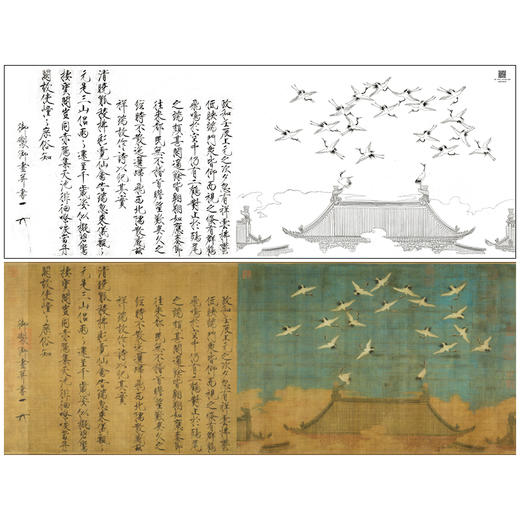 政和壬辰上元之次夕忽有祥雲拂鬱
低映端門衆皆仰而視之倏有群鶴
飛鳴於空中仍有二鶴對止於鴟尾
之端頗甚閒適餘皆翱翔如應奏節
往來都民無不稽首瞻望歎異久之
經時不散迤邐歸飛西北隅散感茲
祥瑞故作詩以紀其實
清曉觚稜拂彩霓仙禽告瑞忽來儀飄〻
元是三山侶兩〻還呈千歲姿似擬碧鸞
棲寶閣豈同赤鴈集天池徘徊嘹唳當丹
闕故使憧〻庶俗知
御製御畫并書
政和壬辰上元之次夕忽有祥雲拂鬱
低映端門衆皆仰而視之倏有群鶴
飛鳴於空中仍有二鶴對止於鴟尾
之端頗甚閒適餘皆翱翔如應奏節
往來都民無不稽首瞻望歎異久之
經時不散迤邐歸飛西北隅散感茲
祥瑞故作詩以紀其實
清曉觚稜拂彩霓仙禽告瑞忽來儀飄〻
元是三山侶兩〻還呈千歲姿似擬碧鸞
棲寶閣豈同赤鴈集天池徘徊嘹唳當丹
闕故使憧〻庶俗知
御製御畫并書